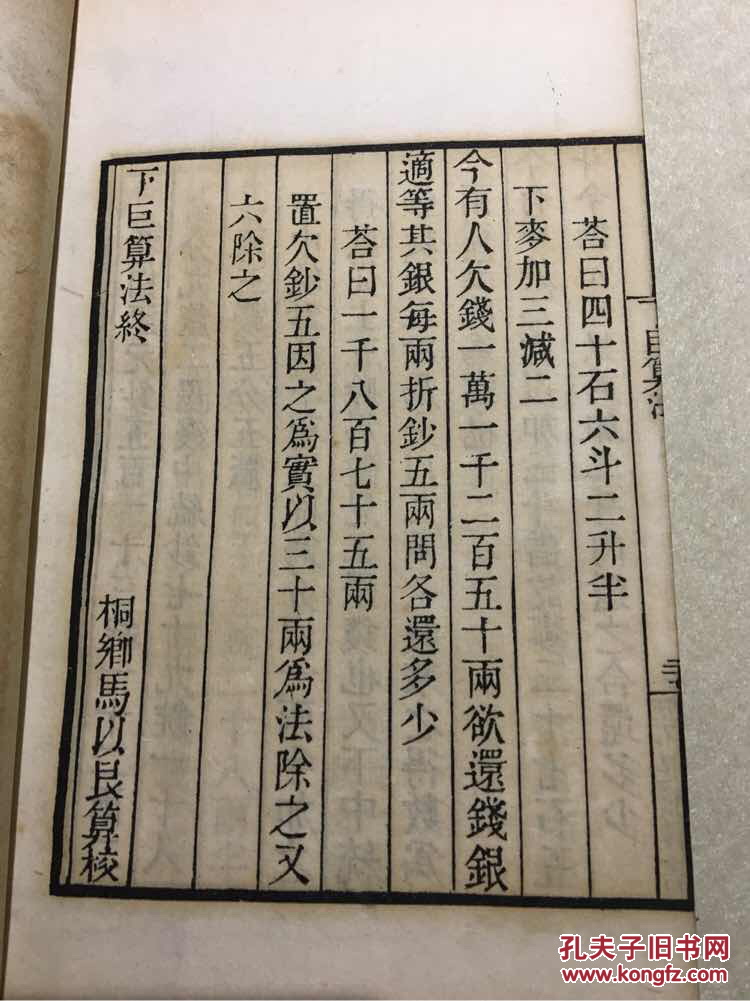 荅曰四十石六斗二升半
下麥加三減二
今有人欠錢一萬一千二百五十兩欲還錢銀
適等其銀每兩折鈔五兩問各還多少
荅曰一千八百七十五兩
置欠鈔五因之爲實以三十兩爲法除之又
六除之
下巨算法終
桐鄉馬以艮算校
孔夫子旧书网
www.kongfz.com